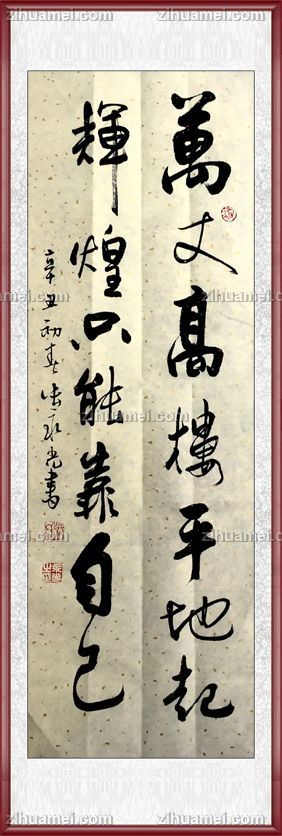 zihuamei.com
萬丈高樓平地起
輝煌只能靠自己
辛丑初春 光書
zihuamei.com